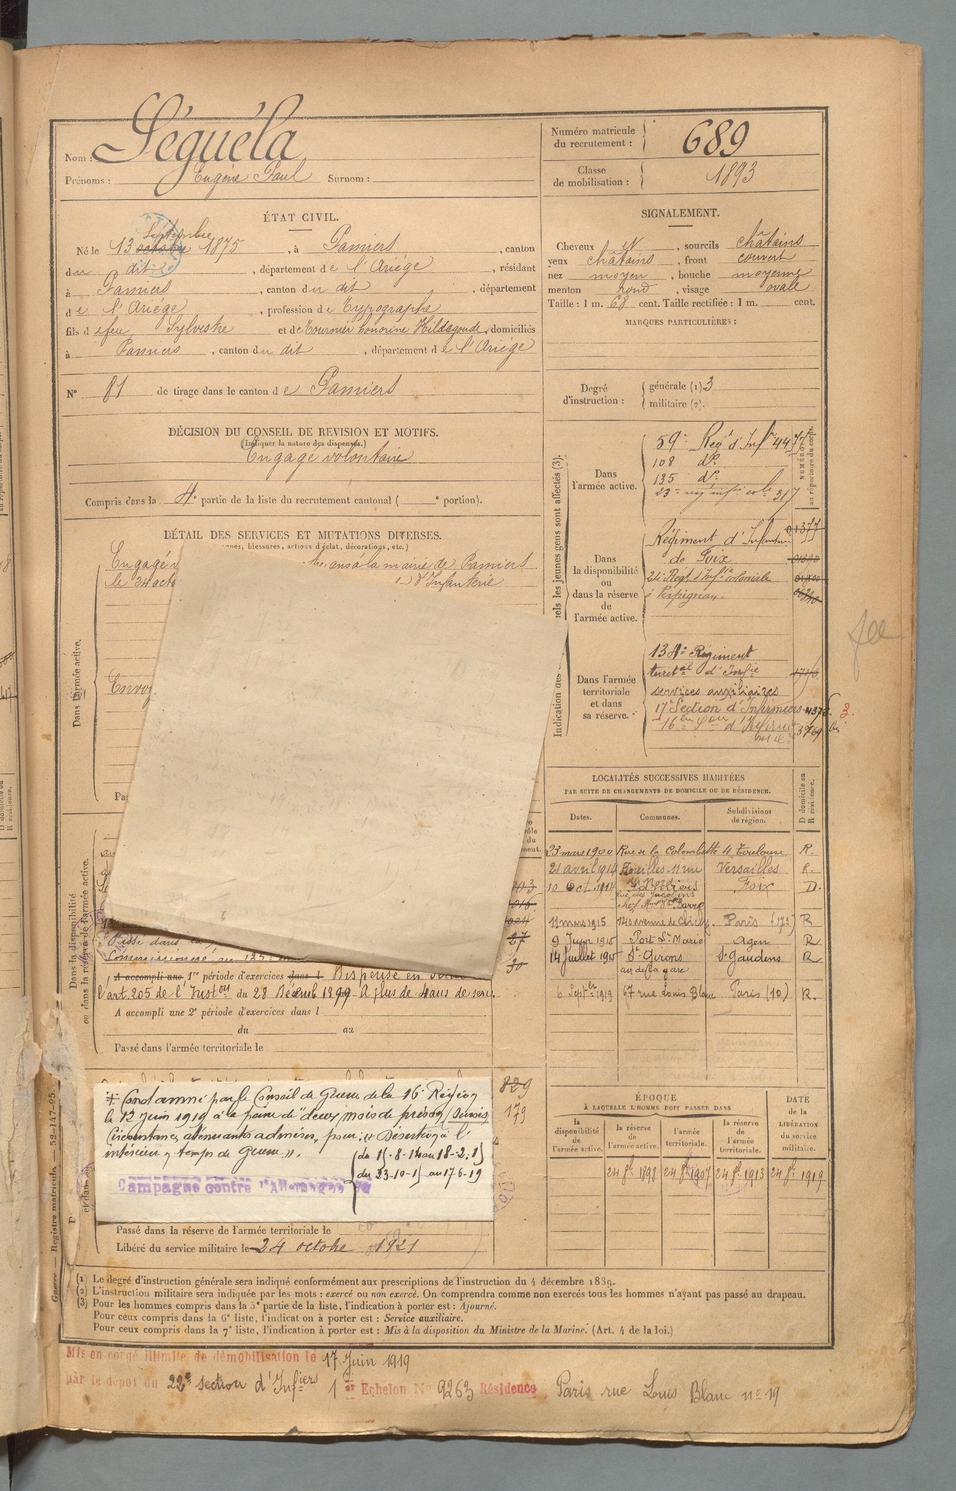 Nom : Séguéla
Prénoms : Eugène Paul Surnom :
Numéro matricule du recrutement : 689
Classe de mobilisation : 1893
ÉTAT CIVIL.
Né le 13 octobre Septembre 1875, à Pamiers, canton
du dit, département de l'Ariége, résidant
à Pamiers, canton du dit, département
de l'Ariége, profession de Typographe
fils de feu Sylvestre et de Tournier honorine Hildegonde, domiciliés
à Pamiers, canton du dit, département de l'Ariége
N° 81 de tirage dans le canton de Pamiers
SIGNALEMENT.
Cheveux et, sourcils châtains
yeux châtains, front couvert
nez moyen, bouche moyenne
menton rond, visage ovale
Taille : 1 m. 68 cent. Taille rectifiée : 1 m. cent.
MARQUES PARTICULIÈRES :
Degré d'instruction : générale (1) 3
militaire (2).
DÉCISION DU CONSEIL DE REVISION ET MOTIFS.
(Indiquer la nature des dispenses.)
Engagé volontaire
Compris dans la 4e partie de la liste du recrutement cantonal ( e portion).
DÉTAIL DES SERVICES ET MUTATIONS DIVERSES.
blessures, actions d'éclat, décorations, etc.)
Engagé
ans à la mairie de Pamiers
le 24 octo
d'Infanterie
Dans l'armée active.
Envoy
Dans la disponibilité ou dans la réserve de l'armée active.
Passé dans
A accompli une 1re période d'exercices dans l Dispensé en
l'art. 205 de l'Inston du 28 Décemb 1899 - A plus de 4 ans de serv.
A accompli une 2e période d'exercices dans l
du au
Passé dans l'armée territoriale le
829
179
Condamné par le Conseil de Guerre de la 16e Région
le 12 juin 1919 à la peine de "deux mois de prison, Sursis
Circonstances atténuantes admises, pour : "Désertion à l'
intérieur en temps de Guerre".
Campagne contre l'Allemagne
du 23-10-15 au 17-6-19
Passé dans la réserve de l'armée territoriale le
Libéré du service militaire le 24 octobre 1921
Dans l'armée active.
59e Regt d'Inf
108 do
135 do
317
Dans la disponibilité ou dans la réserve de l'armée active.
Régiment d'Infanterie
de Foix
24e Régt d'Infie coloniale
à Perpignan
Dans l'armée territoriale et dans sa réserve.
134e Régiment
territal d'Infie
services auxiliaires
17e Section d'Infirmiers
LOCALITÉS SUCCESSIVES HABITÉES
PAR SUITE DE CHANGEMENTS DE DOMICILE OU DE RÉSIDENCE.
Dates. Communes. Subdivisions de région. D domicile ou R résidence.
23 mars 1900 Rue de la Colombette 4 Toulouse R.
21 avril 1914 Houilles 11 rue Versailles R.
10 Oct 1914 Pamiers Foix D.
11 mars 1915 124 avenue de Clichy Paris (17e) R
9 Juin 1915 Port Ste Marie Agen R
14 Juillet 1915 St Girons St Gaudens R
6 Septbre 1919 67 rue Louis Blanc Paris (10) R.
ÉPOQUE
À LAQUELLE L'HOMME DOIT PASSER DANS
la disponibilité de l'armée active.
la réserve de l'armée active.
l'armée territoriale.
la réserve de l'armée territoriale.
DATE de la LIBÉRATION du service militaire.
24 8bre 1898 24 8bre 1907 24 8bre 1913 24 8bre 1919
(1) Le degré d'instruction générale sera indiqué conformément aux prescriptions de l'instruction du 4 décembre 1889.
(2) L'instruction militaire sera indiquée par les mots : exercé ou non exercé. On comprendra comme non exercés tous les hommes n'ayant pas passé au drapeau.
(3) Pour les hommes compris dans la 5e partie de la liste, l'indication à porter est : Ajourné.
Pour ceux compris dans la 6e liste, l'indication à porter est : Service auxiliaire.
Pour ceux compris dans la 7e liste, l'indication à porter est : Mis à la disposition du Ministre de la Marine. (Art. 4 de la loi.)
Mis en congé illimité de démobilisation le 17 Juin 1919
par le dépôt du 22e section d'Infiers 1er Echelon No 9263 Résidence Paris rue Louis Blanc no 19